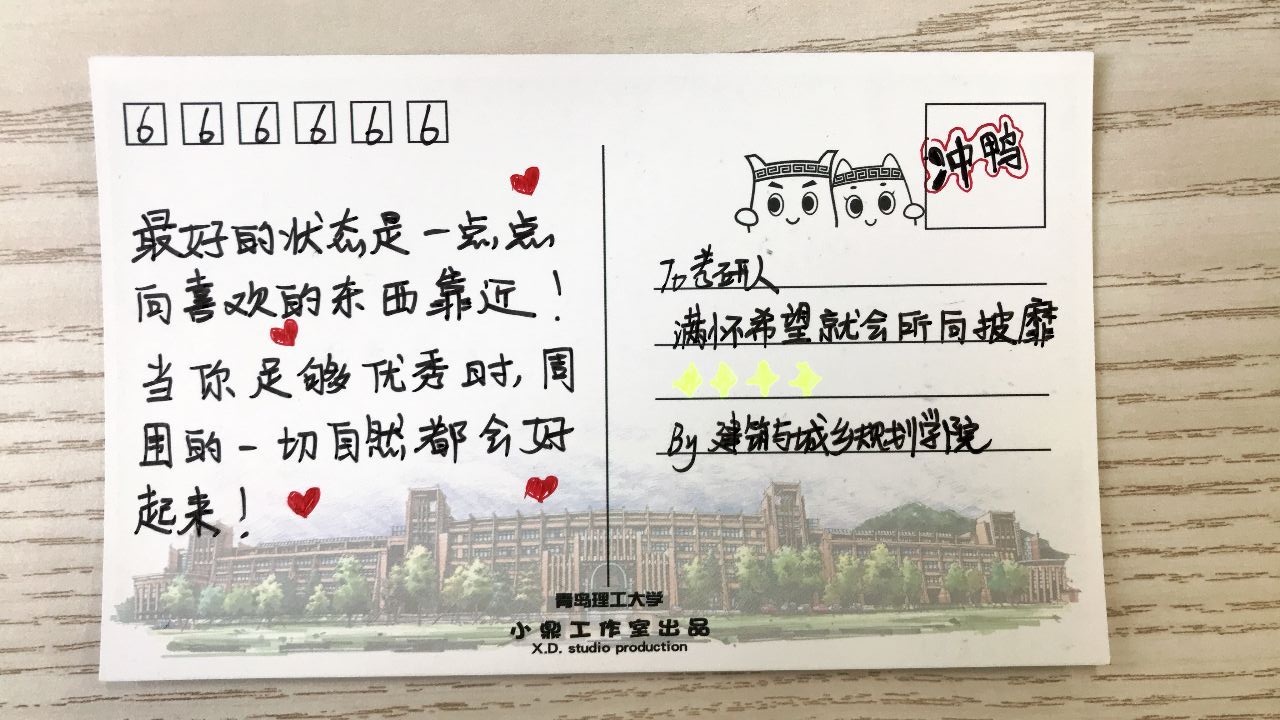 6 6 6 6 6 6
最好的状态是一点点
向喜欢的东西靠近！
当你足够优秀时,周
围的一切自然都会好
起来！
冲鸭
To考研人
满怀希望就会所向披靡
By 建筑与城乡规划学院
青岛理工大学
小鼎工作室出品
X.D. studio production